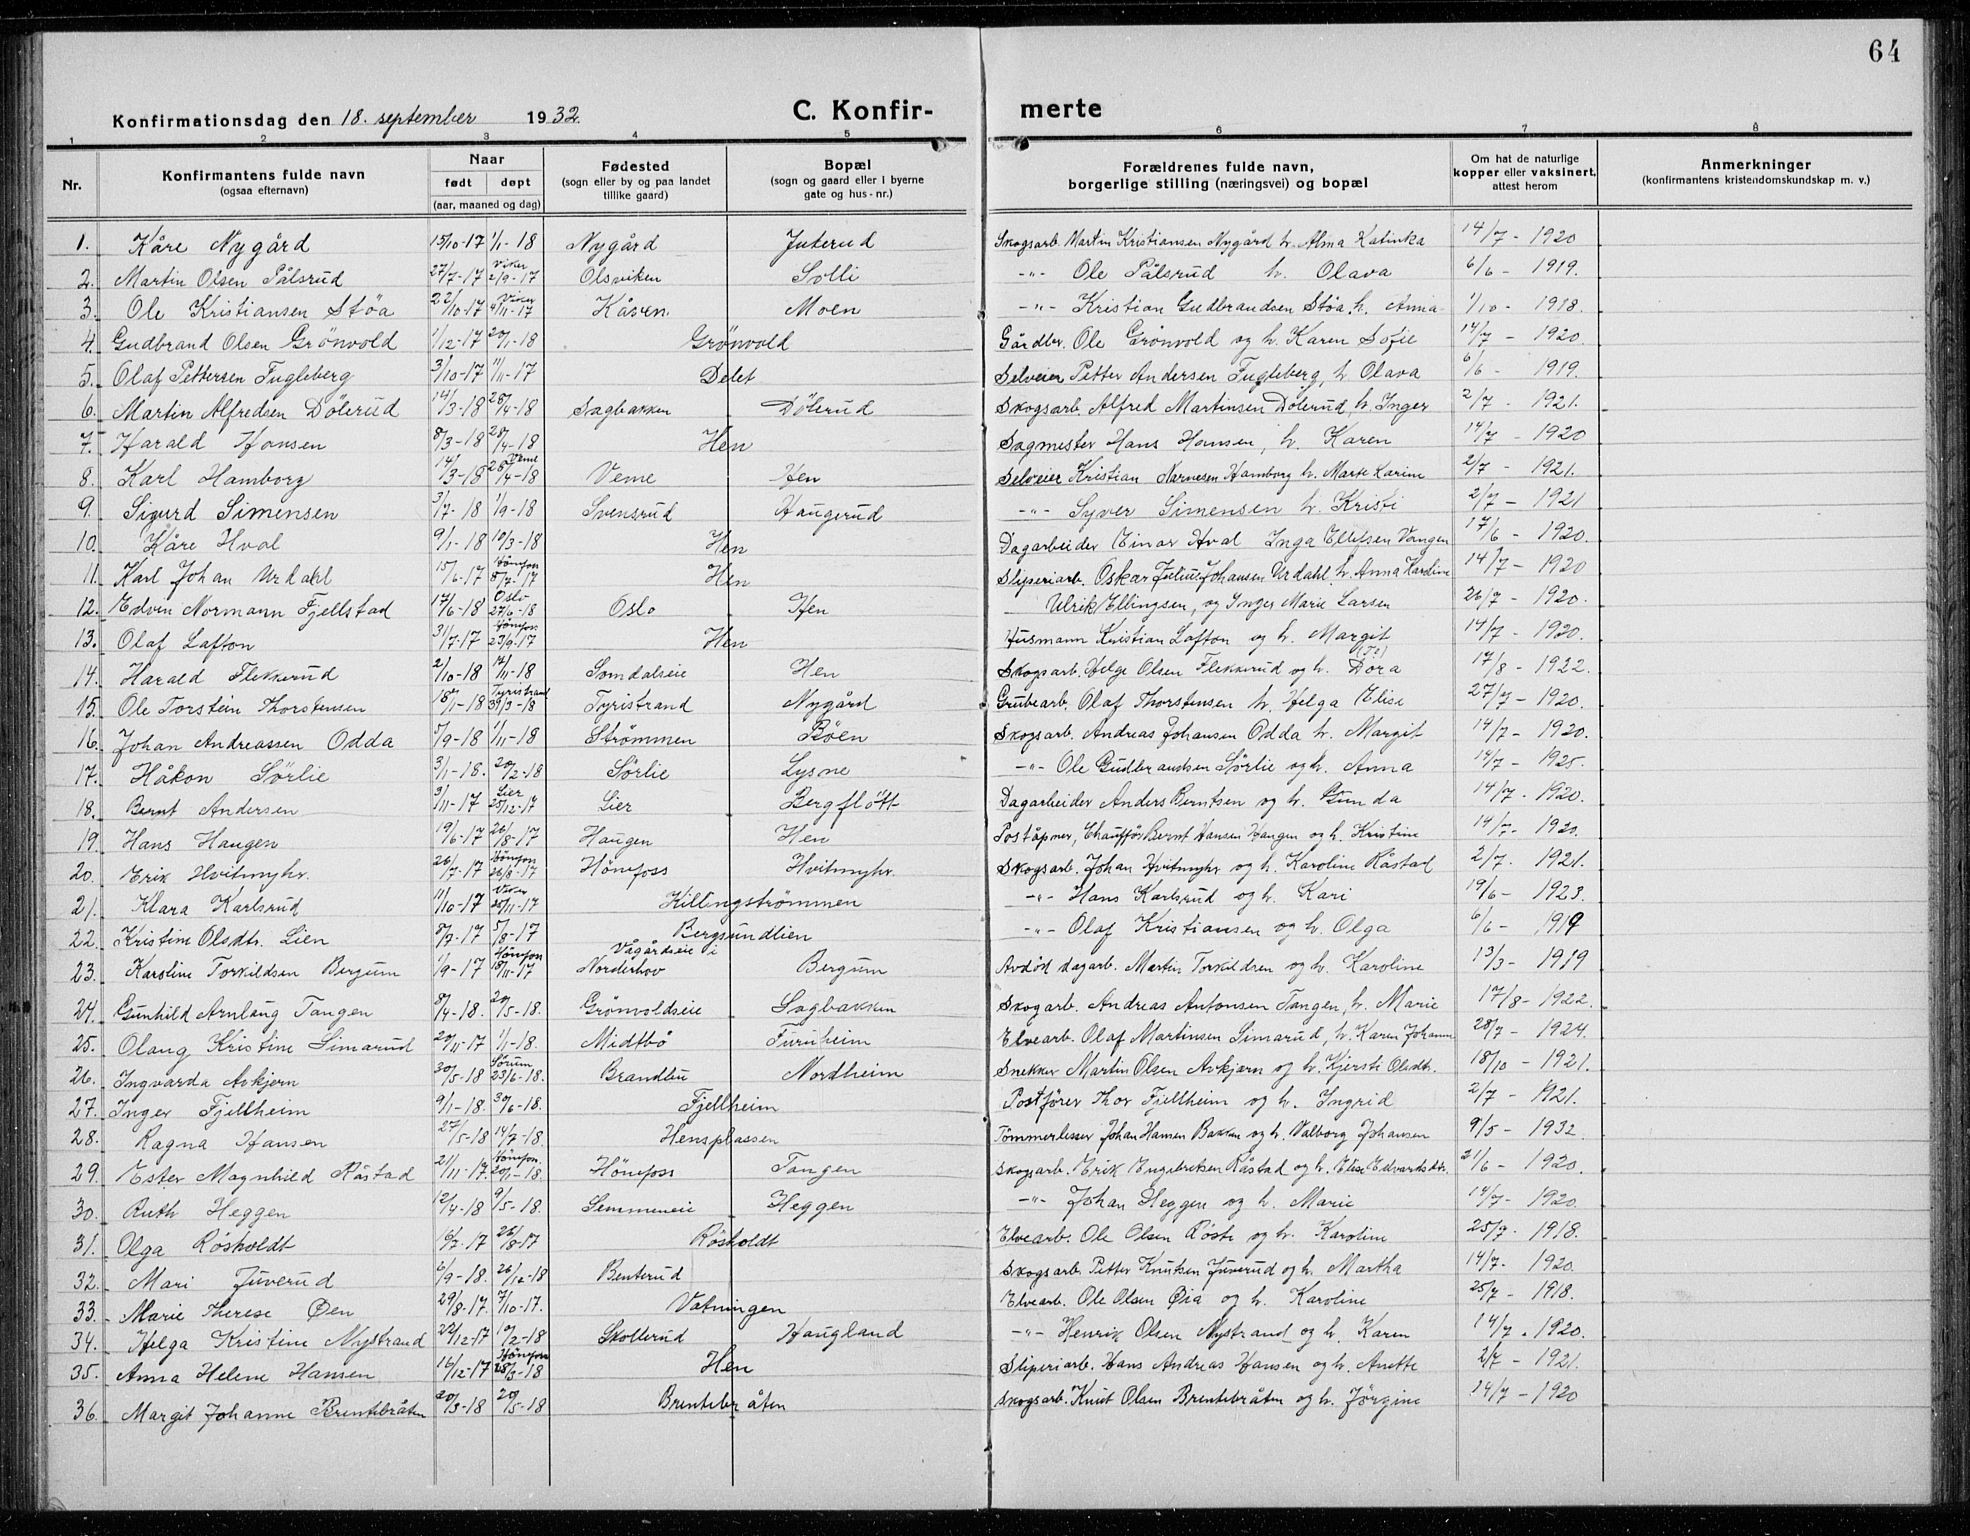 64
Konfirmationsdag den 18. september 1932. C. Konfir- merte
1 2 3 4 5 6 7 8
Nr. Konfirmantens fulde navn (ogsaa efternavn) Naar født døpt (aar, maaned og dag) Fødested (sogn eller by og paa landet tillike gaard) Bopæl (sogn og gaard eller i byerne gate og hus-nr.) Forældrenes fulde navn, borgerlige stilling (næringsvei) og bopæl Om hat de naturlige kopper eller vaksinert, attest herom Anmerkninger (konfirmantens kristendomskundskap m. v.)
1. Kåre Nygård 15/10-17 1/1-18 Nygård Juterud Skogsarb. Martin Kristiansen Nygård h. Alma Katinka 14/7 - 1920
2. Martin Olsen Pålsrud 27/7-17 Viker 2/9-17 Olsviken Solli -"- Ole Pålsrud h. Olava 6/6 - 1919.
3. Ole Kristiansen Støa 22/10-17 Viker 4/11-17 Kåven Moen -"- Kristian Gudbrandsen Støa, h. Anna 1/10 - 1918.
4. Gudbrand Olsen Grönvold 1/12-17 20/1-18 Grönvold Gårdbr. Ole Grönvold og h. Karen Sofie 14/7 - 1920.
5. Olaf Pettersen Fugleberg 3/10-17 11/11-17 Delet Selveier Petter Andersen Fugleberg, h. Olava 6/6 - 1919.
6. Martin Alfredsen Dölerud 14/3-18 28/4-18 Sagbakken Dölerud Skogsarb. Alfred Martinsen Dölerud, h. Inger 2/7 - 1921.
7. Harald Hansen 8/3-18 28/4-18 Hen Sagmester Hans Hansen, h. Karen 14/7 - 1920
8. Karl Hamborg 14/3-18 Veme 28/4-18 Veme Hen Selveier Kristian Narvesen Hamborg h. Marte Karine 2/7 - 1921.
9. Sigurd Simensen 3/7-18 1/9-18 Svensrud Haugerud -"- Syver Simensen h. Kristi 2/7 - 1921
10. Kåre Hval 9/1-18 10/3-18 Hen Dagarbeider Einar Hval Inga Ellefsen Vangen 17/6 - 1920.
11. Karl Johan Urdahl 15/6-17 Hönefoss 8/7-17 Hen Sliperiarb. Oskar Julius Johansen Urdahl h. Anna Karoline 14/7 - 1920
12. Edvin Normann Fjellstad 17/6-18 Oslo 27/6-18 Oslo Hen Ulrik Ellingsen, og Inger Marie Larsen 26/7 - 1920.
13. Olaf Lafton 31/7-17 Hönefoss 23/9-17 Hen Husmann Kristian Lafton og h. Margit 14/7 - 1920.
14. Harald Flekkerud 2/10-18 17/11-18 Somdalseie Hen Skogsarb. Helge Olsen Flekkerud og h. Dora 17/8 - 1922.
15. Ole Torstein Thorstensen 18/1-18 Tyristrand 31/3-18 Tyristrand Nygård Grubearb. Olaf Thorstensen h. Helga Elise 27/7 - 1920.
16. Johan Andreassen Odda 5/9-18 1/11-18 Strömmen Böen Skogsarb. Andreas Johansen Odda h. Margit 14/7 - 1920.
17. Håkon Sörlie 3/1-18. 20/2-18 Sörlie Lysne -"- Ole Gudbrandsen Sörlie og h. Anna 14/7 - 1925.
18. Bernt Andersen 3/11-17 Lier 25/12-17 Lier Bergflött Dagarbeider Anders Berntsen og h. Gunda 14/7 - 1920.
19. Hans Haugen 19/6-17 26/8-17 Haugen Hen Poståpner, Chauffør Bernt Hansen Haugen og h. Kristine 14/7 - 1920.
20. Erik Hvitmyhr. 26/7-17 Hönefoss 26/8-17 Hönefoss Hvitmyhr. Skogsarb. Johan Hvitmyhr og h. Karoline Råstad 2/7 - 1921.
21. Klara Karlsrud 11/10-17 Viker 25/11-17 Killingströmmen -"- Hans Karlsrud og h. Kari 19/6 - 1923.
22. Kristine Olsdtr. Lien 8/7-17 5/8-17 Bergsundlien -"- Olaf Kristiansen og h. Olga 6/6 - 1919
23. Karoline Torkildsen Bergum 1/9-17 Hönefoss 18/11-17 Vågårdseie i Norderhov Bergum Avdöd dagarb. Martin Torkildsen og h. Karoline 13/3 - 1919
24. Gunhild Arnlaug Tangen 8/4-18. 20/5-18. Grönvoldseie Sagbakken Skogarb. Andreas Antonsen Tangen, h. Marie 17/8 - 1922.
25. Olaug Kristine Simarud 20/11-17 1/1-18. Midtbö Furuheim Elvearb. Olaf Martinsen Simarud, h. Karen Johanne 28/7 - 1924.
26. Ingvarda Avkjern 30/5-18 Sörum 23/6-18. Brandbu Nordheim Snekker Martin Olsen Avkjærn og h. Kjersti Olsdtr. 18/10 - 1921.
27. Inger Fjellheim 9/1-18. 30/6-18. Fjellheim Postförer Thor Fjellheim og h. Ingrid 2/7 - 1921.
28. Ragna Hansen 27/5-18 14/7-18. Hensplassen Tömmerlesser Johan Hansen Bakken og h. Valborg Johansen 9/5 - 1932.
29. Ester Magnhild Råstad 21/11-17. Hönefoss. 20/1-18. Hönefoss Tangen Skogsarb. Erik Engebriksen Råstad og h. Elise Edvardsdtr. 21/6 - 1920.
30. Ruth Heggen 12/4-18 9/5-18. Semmeneie Heggen -"- Johan Heggen og h. Marie 14/7 - 1920.
31. Olga Rösholdt 16/7-17 26/8-17 Rösholdt Elvearb. Ole Olsen Röste og h. Karoline 25/7 - 1918.
32. Mari Juverud 6/9-18. 26/12-18 Benterud Skogsarb. Petter Knutsen Juverud og h. Martha 14/7 - 1920.
33. Marie Therese Øen 29/8-17. 7/10-17. Vatningen Elvearb. Ole Olsen Øia og h. Karoline 25/7 - 1918.
34. Helga Kristine Nystrand 22/12-17 10/2-18 Skollerud Haugland -"- Henrik Olsen Nystrand og h. Karen 14/7 - 1920.
35. Anna Helene Hansen 16/12-17 Hönefoss 28/3-18 Hen Sliperiarb. Hans Andreas Hansen og h. Anette 2/7 - 1921.
36. Margit Johanne Brentebråten 20/3-18 20/5-18 Brentebråten Skogsarb. Knut Olsen Brentebråten og h. Jörgine 14/7 - 1920